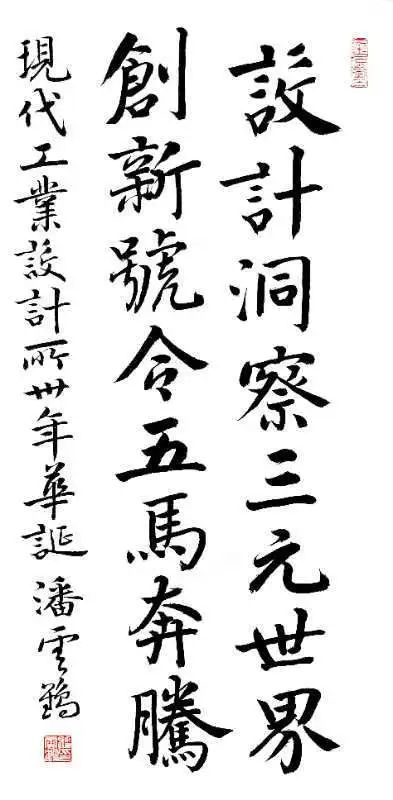 設計洞察三元世界
創新號令五馬奔騰
現代工業設計所卅年華誕 潘雲鶴